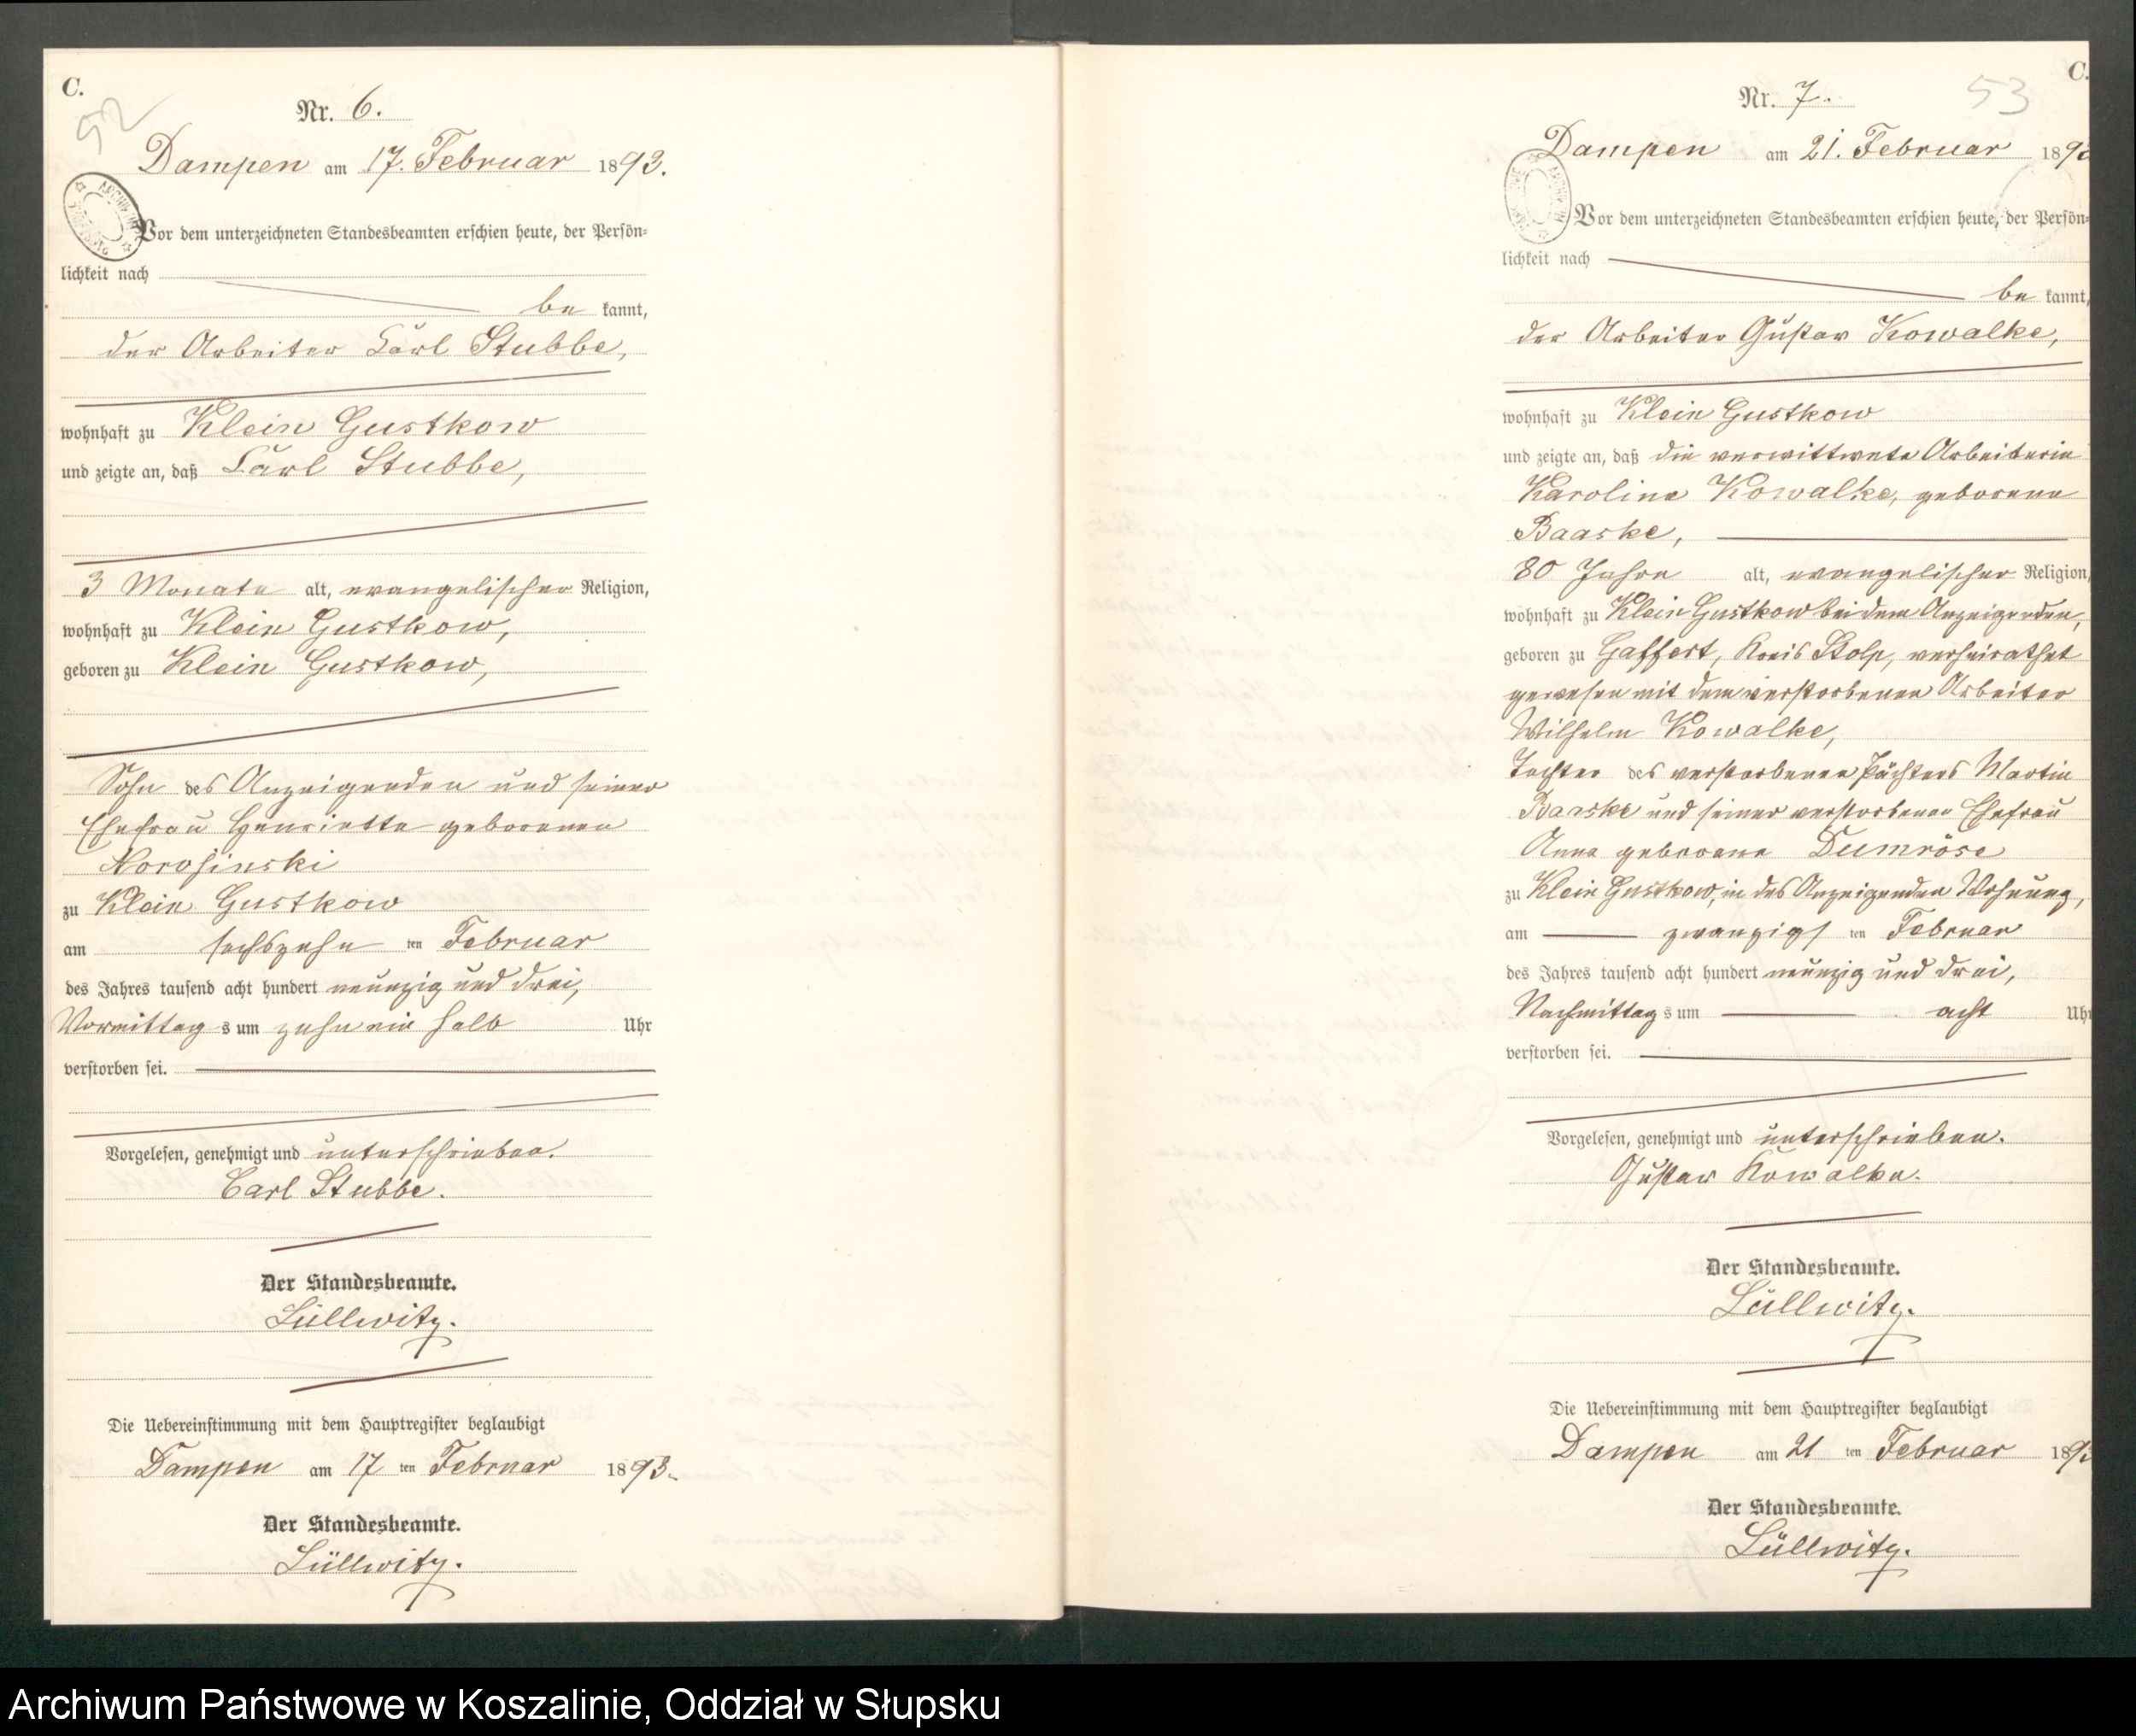 C.
52
Nr. 6.
Dampen am 17. Februar 1893.
Vor dem unterzeichneten Standesbeamten erschien heute, der Persön-
lichkeit nach
be kannt,
der Arbeiter Carl Stubbe,
wohnhaft zu Klein Gustkow
und zeigte an, daß Carl Stubbe,
3 Monate alt, evangelischer Religion,
wohnhaft zu Klein Gustkow,
geboren zu Klein Gustkow,
Sohn des Anzeigenden und seiner
Ehefrau Henriette geborenen
Norosinski
zu Klein Gustkow
am sechszehn ten Februar
des Jahres tausend acht hundert neunzig und drei,
Vormittag s um zehn ein halb Uhr
verstorben sei.
Vorgelesen, genehmigt und unterschrieben.
Carl Stubbe.
Der Standesbeamte.
Lüllwitz.
Die Uebereinstimmung mit dem Hauptregister beglaubigt
Dampen am 17 ten Februar 1893.
Der Standesbeamte.
Lüllwitz.
C.
53
Nr. 7.
Dampen am 21. Februar 189
Vor dem unterzeichneten Standesbeamten erschien heute, der Persön-
lichkeit nach
be kannt,
der Arbeiter Gustav Kowalke,
wohnhaft zu Klein Gustkow
und zeigte an, daß die verwittwete Arbeiterin
Karoline Kowalke, geborene
Baaske,
80 Jahre alt, evangelischer Religion,
wohnhaft zu Klein Gustkow bei dem Anzeigenden,
geboren zu Gaffert, Kreis Stolp, verheirathet
gewesen mit dem verstorbenen Arbeiter
Wilhelm Kowalke,
Tochter des verstorbenen Pächters Martin
Baaske und seiner verstorbenen Ehefrau
Anna geborene Dumröse
zu Klein Gustkow, in des Anzeigenden Wohnung,
am zwanzigs ten Februar
des Jahres tausend acht hundert neunzig und drei,
Nachmittag s um acht Uhr
verstorben sei.
Vorgelesen, genehmigt und unterschrieben.
Gustav Kowalke.
Der Standesbeamte.
Lüllwitz.
Die Uebereinstimmung mit dem Hauptregister beglaubigt
Dampen am 21 ten Februar 189
Der Standesbeamte.
Lüllwitz.
Archiwum Państwowe w Koszalinie, Oddział w Słupsku